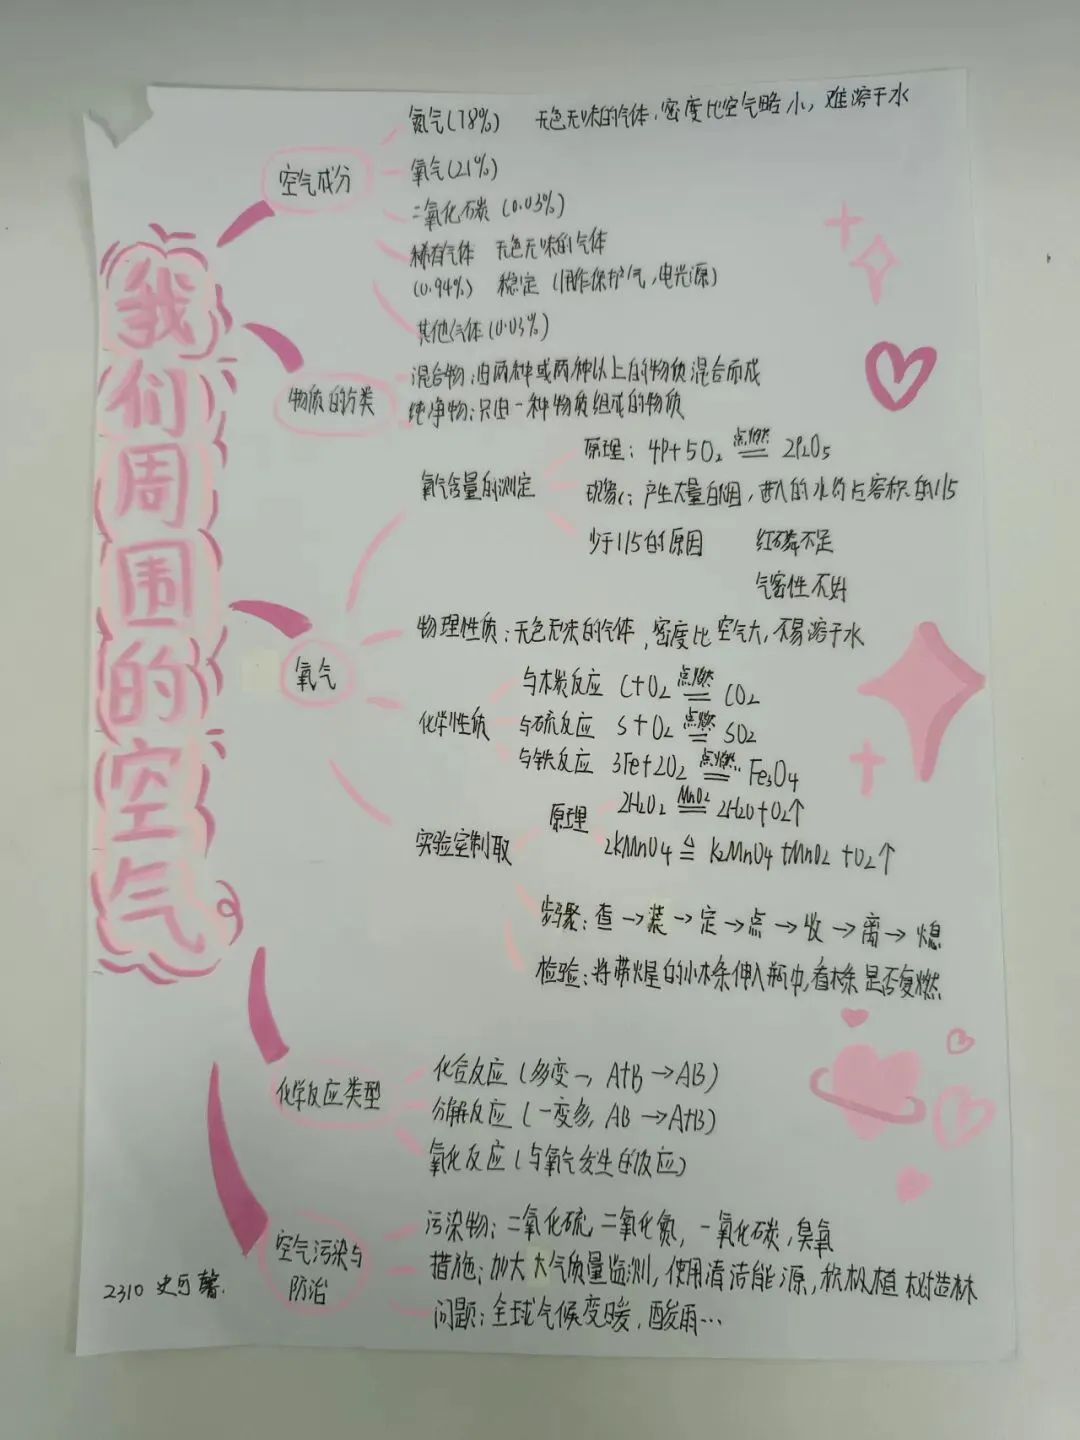 我们周围的空气
空气成分
氮气(78%) 无色无味的气体,密度比空气略小,难溶于水
氧气(21%)
二氧化碳(0.03%)
稀有气体 无色无味的气体
(0.94%) 稳定(用作保护气,电光源)
其他气体(0.03%)
物质的分类
混合物:由两种或两种以上的物质混合而成
纯净物:只由一种物质组成的物质
氧气
氧气含量的测定
原理:4P+5O₂ 点燃 == 2P₂O₅
现象:产生大量白烟,进入的水约占容积的1/5
少于1/5的原因 红磷不足
气密性不好
物理性质:无色无味的气体,密度比空气大,不易溶于水
化学性质
与木炭反应 C+O₂ 点燃 == CO₂
与硫反应 S+O₂ 点燃 == SO₂
与铁反应 3Fe+2O₂ 点燃 == Fe₃O₄
实验室制取
原理
2H₂O₂ MnO₂ == 2H₂O+O₂↑
2KMnO₄ △ == K₂MnO₄+MnO₂+O₂↑
步骤:查→装→定→点→收→离→熄
检验:将带火星的小木条伸入瓶中,看木条是否复燃
化学反应类型
化合反应(多变一,A+B→AB)
分解反应(一变多,AB→A+B)
氧化反应(与氧气发生的反应)
空气污染与
防治
污染物:二氧化硫,二氧化氮,一氧化碳,臭氧
措施:加大大气质量监测,使用清洁能源,积极植树造林
问题:全球气候变暖,酸雨…
2310 史可馨